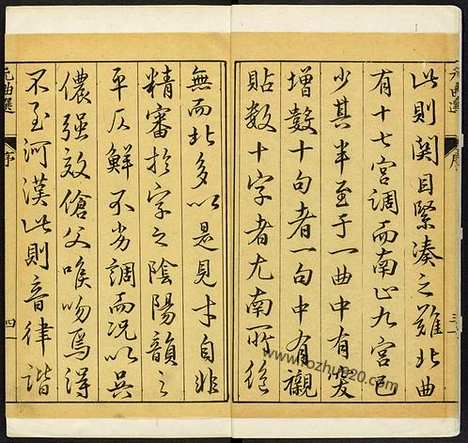 此則關目緊湊之難北曲
有十七宮調而南止九宮已
少其半至于一曲中有突
增數十句者一句中有襯
貼數十字者尤南所絕
無而北多以是見才自非
精審於字之陰陽韻之
平仄鮮不劣調而况以吳
儂强效傖父喉吻焉得
不至河漢此則音律諧
元曲選
序
三
元曲選
序
四